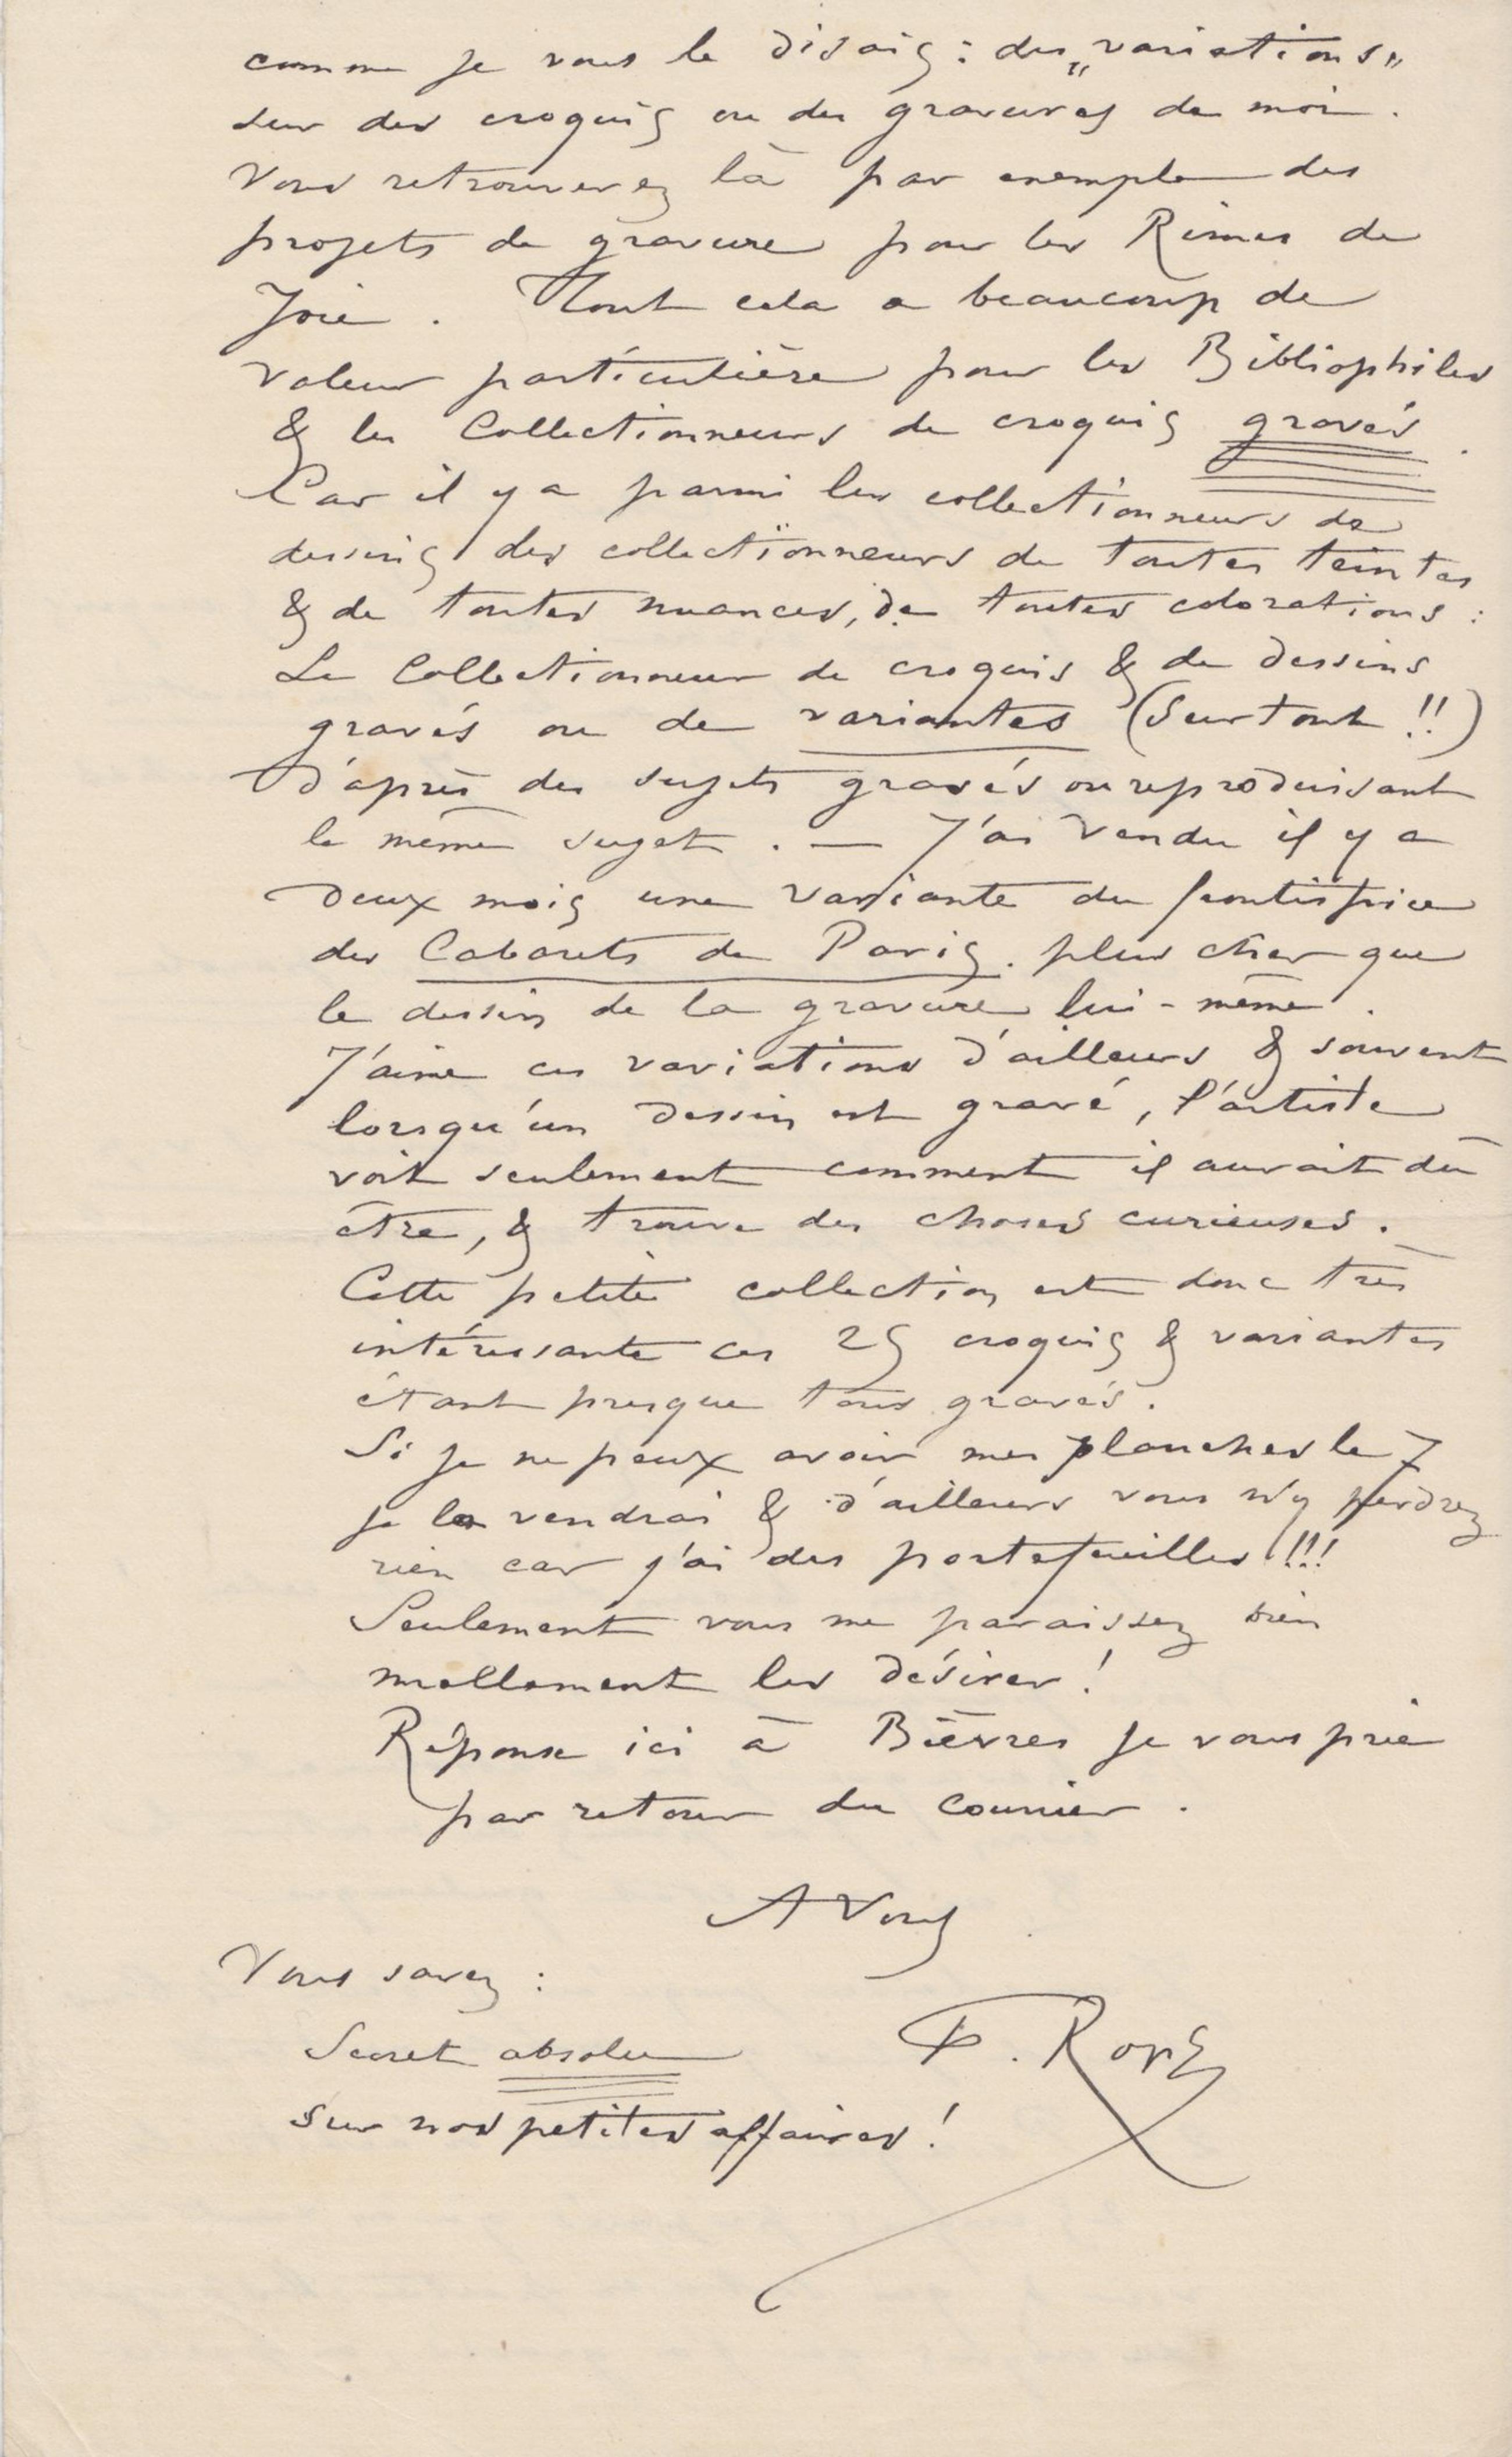 comme je vous le disais : des „variations"
sur des croquis ou des gravures de moi.
Vous retrouverez là par exemple des
projets de gravure pour les Rimes de
Joie. Tout cela a beaucoup de
valeur particulière pour les Bibliophiles
& les Collectionneurs de croquis gravés.
Car il y a parmi les collectionneurs de
dessins des collectionneurs de toutes teintes
& de toutes nuances, de toutes colorations :
Le Collectionneur de croquis & de dessins
gravés ou de variantes (Surtout !!)
d'après des sujets gravés ou reproduisant
le même sujet. — J'ai vendu il y a
deux mois une variante du frontispice
des Cabarets de Paris. plus cher que
le dessin de la gravure lui-même.
J'aime ces variations d'ailleurs & souvent
lorsqu'un dessin est gravé, l'artiste
voit seulement comment il aurait dû
être, & trouve des choses curieuses.
Cette petite collection est donc très
intéressante ces 25 croquis & variantes
étant presque tous gravés.
Si je ne peux avoir mes planches le 7
je les vendrai & d'ailleurs vous n'y perdrez
rien car j'ai des portefeuilles !!!
Seulement vous me paraissez bien
mollement les désirer !
Réponse ici à Bièvres je vous prie
par retour du courrier.
A Vous
Vous savez :
F. Rops
Secret absolu
sur nos petites affaires !